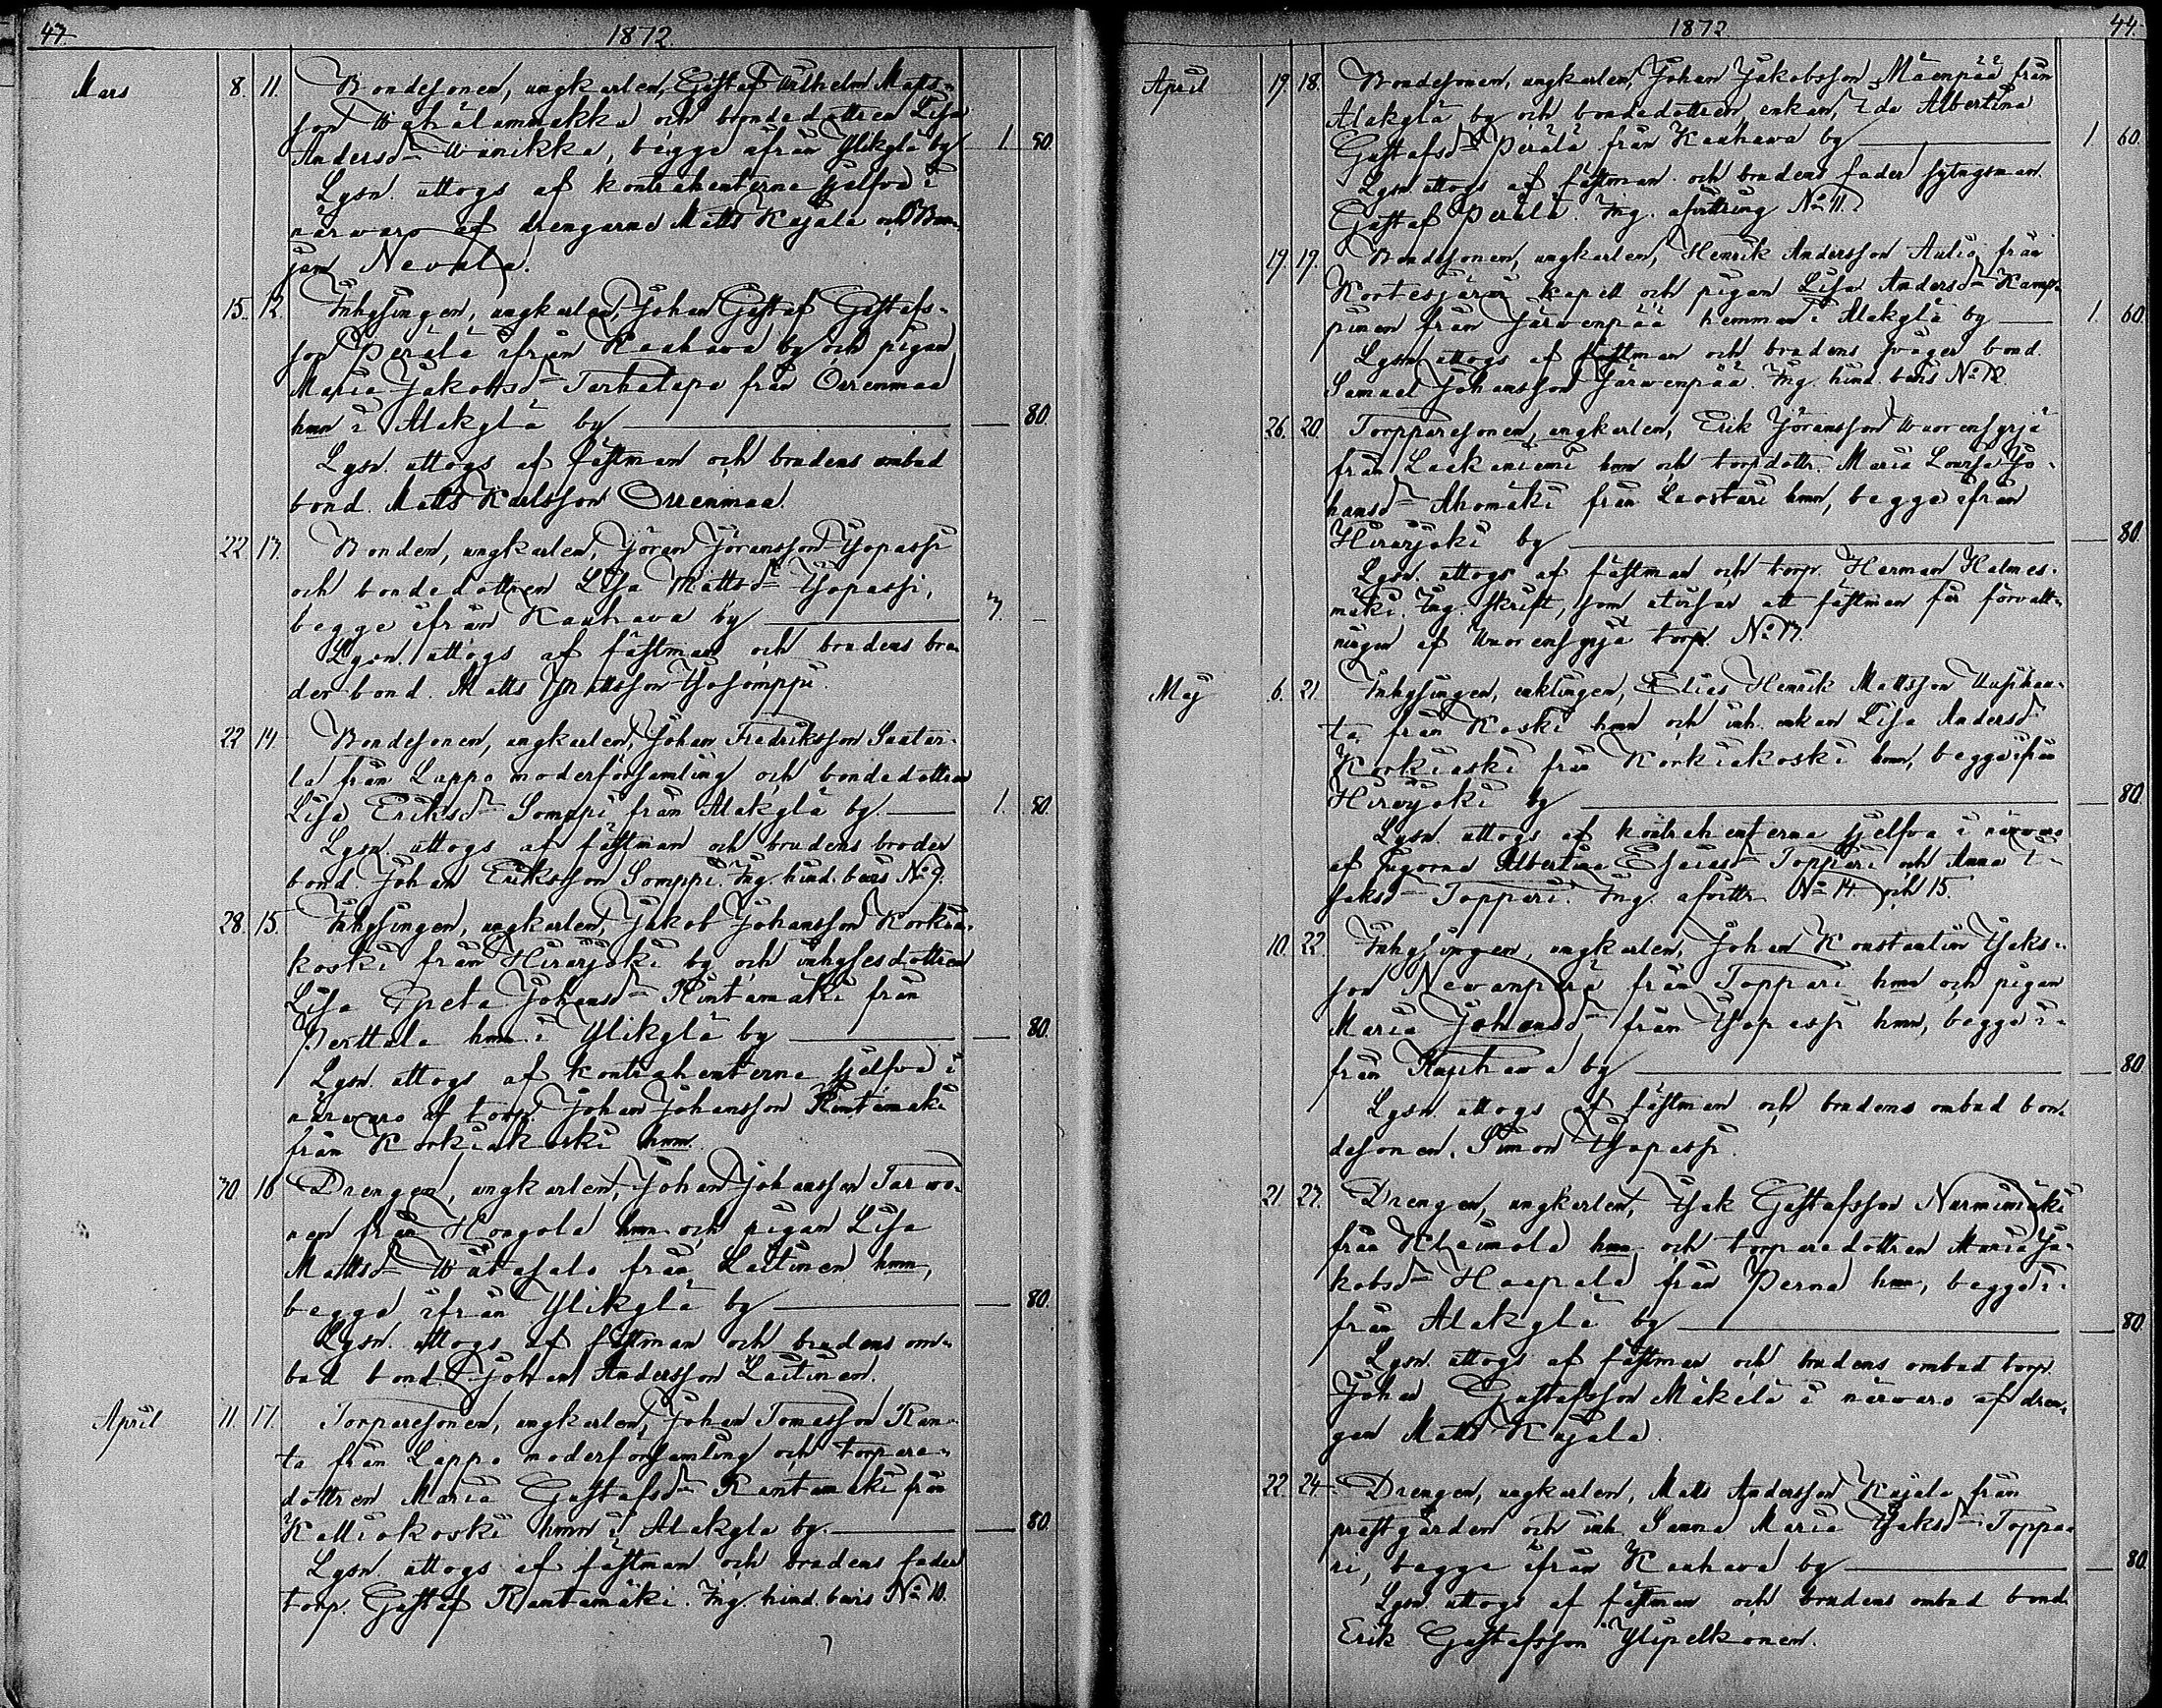 43. 1872.
Mars 8. 11. Bondesonen, ungkarlen, Gustaf Wilhelm Matts-
son Wähälummukka och bondedottren Lisa
Andersd:r Wänikka, begge ifrån Ylikylä by — 1. 80.
Lysn. uttogs af kontrahenterne sjelfva i
närvaro af drengarne Matts Kujala och Ben-
jam Nevala.
15. 12. Inhysingen, ungkarlen, Johan Gustaf Gustafs-
son Perälä ifrån Kauhava by och pigan
Maria Jakobsd:r Tarhalapa från Orrenmaa
hmn i Alakylä by — 80.
Lysn. uttogs af fästman och brudens ombud
bond. Matts Karlsson Orrenmaa.
22. 13. Bonden, ungkarlen, Jöran Jöransson Yopassi
och bondedottren Lisa Mattsd:r
begge ifrån Kauhava by — 3. –
Lysn. uttogs af fästman och brudens bro-
der bond. Matts Mattsson
22. 14. Bondesonen, ungkarlen, Johan Fredriksson Saater-
la från Lappo moderförsamling och bondedottren
Lisa Eriksd:r Somppi från Alakylä by. — 1. 80.
Lysn. uttogs af fästman och brudens broder
bond. Johan Eriksson Somppi. Ing. hind. bevis No 9.
28. 15. Inhysingen, ungkarlen, Jakob Johansson Korkia-
koski från Hirvijoki by och inhysesdottren
Lisa Greta Johansd:r Rintamäki från
Perttula hmn i Ylikylä by — 80.
Lysn. uttogs af kontrahenterne sjelfva i
närvaro af torp. Johan Johansson Rintamäki
från Korkiakoski hmn.
30. 16. Drengen, ungkarlen, Johan Johansson Tarvo-
nen från Hongola hmn och pigan Lisa
Mattsd:r Wäatasalo från Laitinen hmn,
begge ifrån Ylikylä by — 80.
Lysn. uttogs af fästman och brudens om-
bud bond. Johan Andersson Laitinen.
April 11. 17. Torparesonen, ungkarlen, Johan Tomasson Ran-
ta från Lappo moderförsamling och torpare-
dottren Maria Gustafsd:r Rantamäki från
Kalliokoski hmn i Alakylä by. — 80.
Lysn. uttogs af fästman och brudens fader
torp. Gustaf Rantamäki. Ing. hind. bevis No 10.
1872 44.
April 19. 18. Bondesonen, ungkarlen, Johan Jakobsson Mäenpää från
Alakylä by och bondedottren, enkan, Ida Albertina
Gustafsd:r Perälä från Kauhava by — 1. 60.
Lysn. uttogs af fästman och brudens fader sytngsman.
Gustaf Perälä. Ing. afvittring No 11.
19. 19. Bondesonen, ungkarlen, Henrik Andersson Aulio från
Kortesjärvi kapell och pigan Lisa Andersd:r Kamp-
pinen från Järvenpää hemman i Alakylä by — 1. 60.
Lysn. uttogs af fästman och brudens svåger bond.
Samuel Johansson Järvenpää. Ing. hind. bevis No 12.
26. 20. Torpparesonen, ungkarlen, Erik Jöransson Wuorensyrjä
från Laakaniemi hmn och torpdottr. Maria Lovisa Jo-
hansd:r Ahomäki från Luostari hmn, begge ifrån
Hirvijoki by — 80.
Lysn. uttogs af fästman och torp. Herman Halmes-
mäki. Ing. skrift, som utvisar att fästman får förvalt-
ningen af Wuorensyrjä torp. No 13.
Maj 6. 21. Inhysingen, enklingen, Elias Henrik Mattsson Uusihau-
ta från Koski hmn och inh. enkan Lisa Andersd:r
från Korkiakoski hmn, begge ifrån
Hirvijoki by — 80.
Lysn. uttogs af kontrahenterne sjelfva i närvaro
af pigorna Albertina Esaiasd:r Toppari och Anna I-
saksd:r Toppari. Ing. afvittr. No 14. och 15.
10. 22. Inhysingen, ungkarlen, Johan Konstantin Isaks-
son Nevanperä från Toppari hmn och pigan
Maria Johansd:r från Yopassi hmn, begge i-
från Kauhava by — 80
Lysn. uttogs af fästman och brudens ombud bon-
desonen, Simon Yopassi.
21. 23. Drengen, ungkarlen, Isak Gustafsson Nurmimäki
från Kleimola hmn och torparedottren Maria Ja-
kobsd:r Haapala från Perna hmn, begge i-
från Alakylä by — 80
Lysn. uttogs af fästman och brudens ombud torp.
Johan Gustafsson Mäkelä i närvaro af dren-
gen Matts Kujala.
22. 24. Drengen, ungkarlen, Matts Andersson Kujala från
prestgården och inh. Sanna Maria Isaksd:r Toppa-
ri, begge ifrån Kauhava by — 80.
Lysn. uttogs af fästman och brudens ombud bond.
Erik Gustafsson Ylipelkonen.